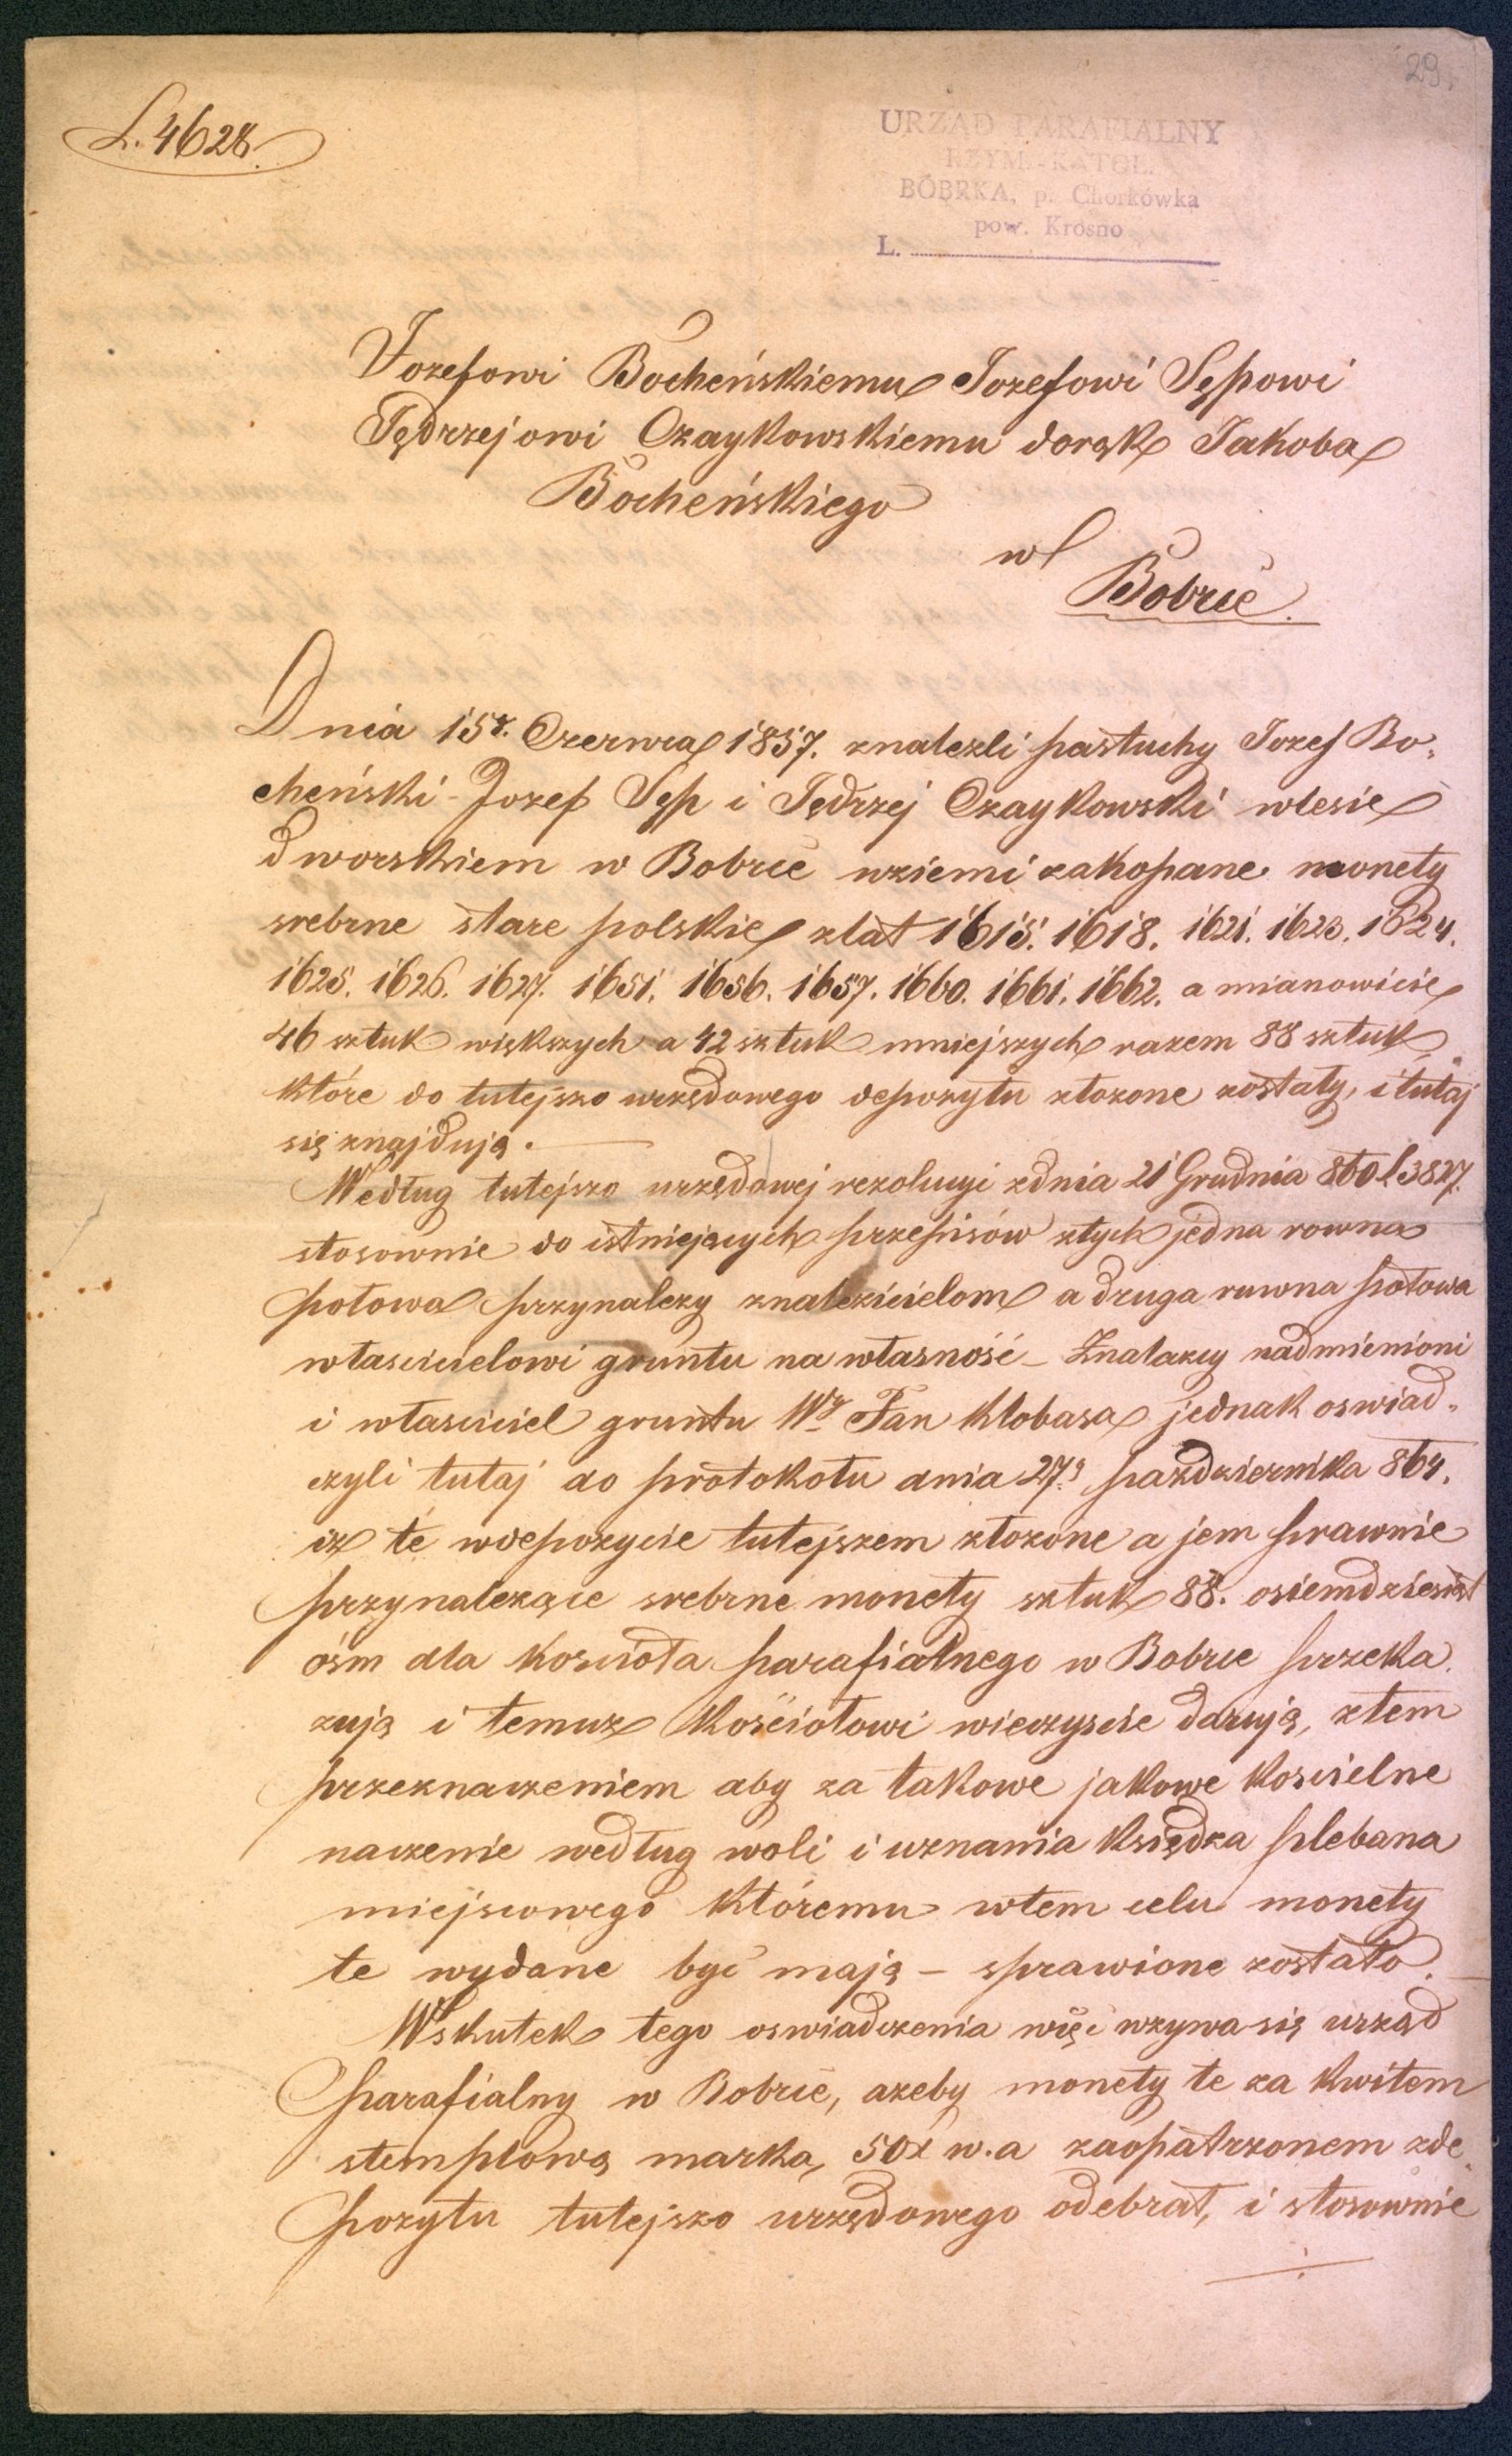 29.
L. 4628.
URZĄD PARAFIALNY
RZYM.-KATOL.
BÓBRKA, p. Chorkówka
pow. Krosno
L.
Jozefowi Bocheńskiemu Jozefowi Sępowi
Jędrzejowi Czaykowskiemu do rąk Jakoba
Bocheńskiego
w
Bobrce.
Dnia 15º. Czerwca 1857. znalezli pastuchy Jozef Bo-
cheński - Jozef Sęp i Jędrzej Czaykowski wlesie
dworskiem w Bobrce wziemi zakopane monety
srebrne stare polskie zlat 1615. 1618. 1621. 1623. 1624.
1625. 1626. 1627. 1651. 1656. 1657. 1660. 1661. 1662. a mianowicie
46 sztuk większych a 42 sztuk mniejszych razem 88 sztuk,
które do tutejszo urzędowego depozytu złozone zostały, i tutaj
się znajdują.
Według tutejszo urzędowej rezolucyi zdnia 21 Grudnia 860 l 3827.
stosownie do istniejących przepisów ztych jedna rowna
połowa przynalezy znalezicielom a druga ruwna połowa
własicielowi gruntu na własność - Znalazcy nadmienioni
i własciciel gruntu Wy Jan Klobasa jednak oswiad-
czyli tutaj do protokołu dnia 27º pazdziernika 864.
iz te wdepozycie tutejszem złozone a jem prawnie
przynalezące srebrne monety sztuk 88. osiemdziesiąt
ośm dla kosciola parafialnego w Bobrce przeka-
zują i temuz Kościołowi wieczyscie darują, ztem
przeznaczeniem aby za takowe jakowe koscielne
naczenie według woli i uznania Księdza plebana
miejscowego któremu wtem celu monety
te wydane być mają - sprawione zostało.
Wskutek tego oswiadczenia więc wzywa się urząd
parafialny w Bobrce, azeby monety te za kwitem
stemplową marka, 50x w.a zaopatrzonem zde-
pozytu tutejszo urzędowego odebrał, i stosownie